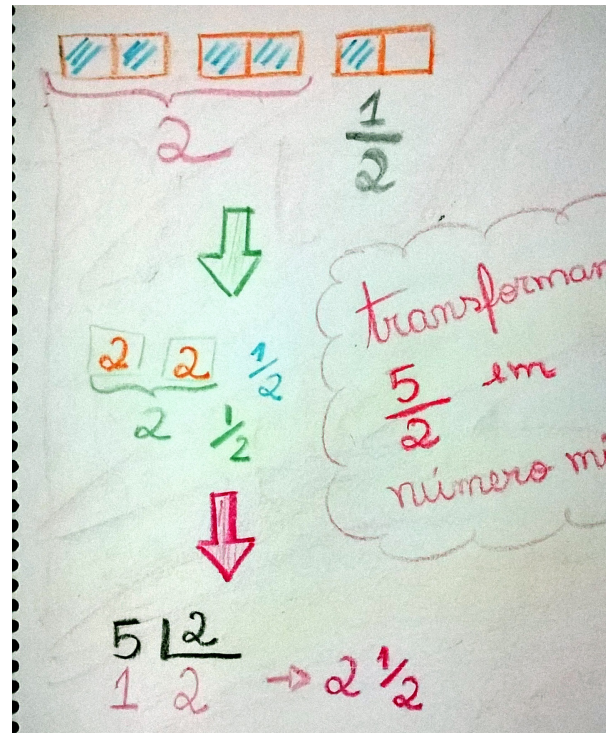 2 1/2
2 2 1/2
2 1/2
transforman
5/2 em
número mi
5 2
1 2 → 2 1/2